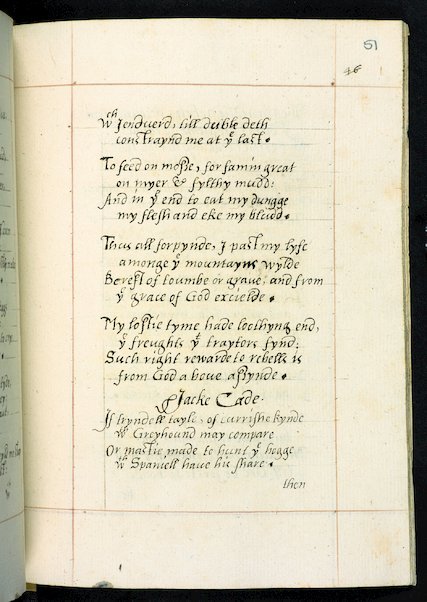 51
46
wch I enduerd, till duble deth
constraynd me at ye last.
To feed on mosse, for famin great
on myer & fylthy mudd:
And in ye end to eat my dungge
my flesh and eke my bludd.
Thus all forpynde, I past my lyfe
amonge ye mountayns wylde
Bereft of toumbe or grave, and from
ye grace of God excielde.
My lostie tyme hade lothyng end,
ye freughts yt traytors fynd:
Such right rewarde to rebells is
from God above assynde.
Jacke Cade.
If tryndell tayle, of currishe kynde
wth Greyhound may compare
Or mastie, made to hunt ye hogge
wth Spaniell have his share.
then